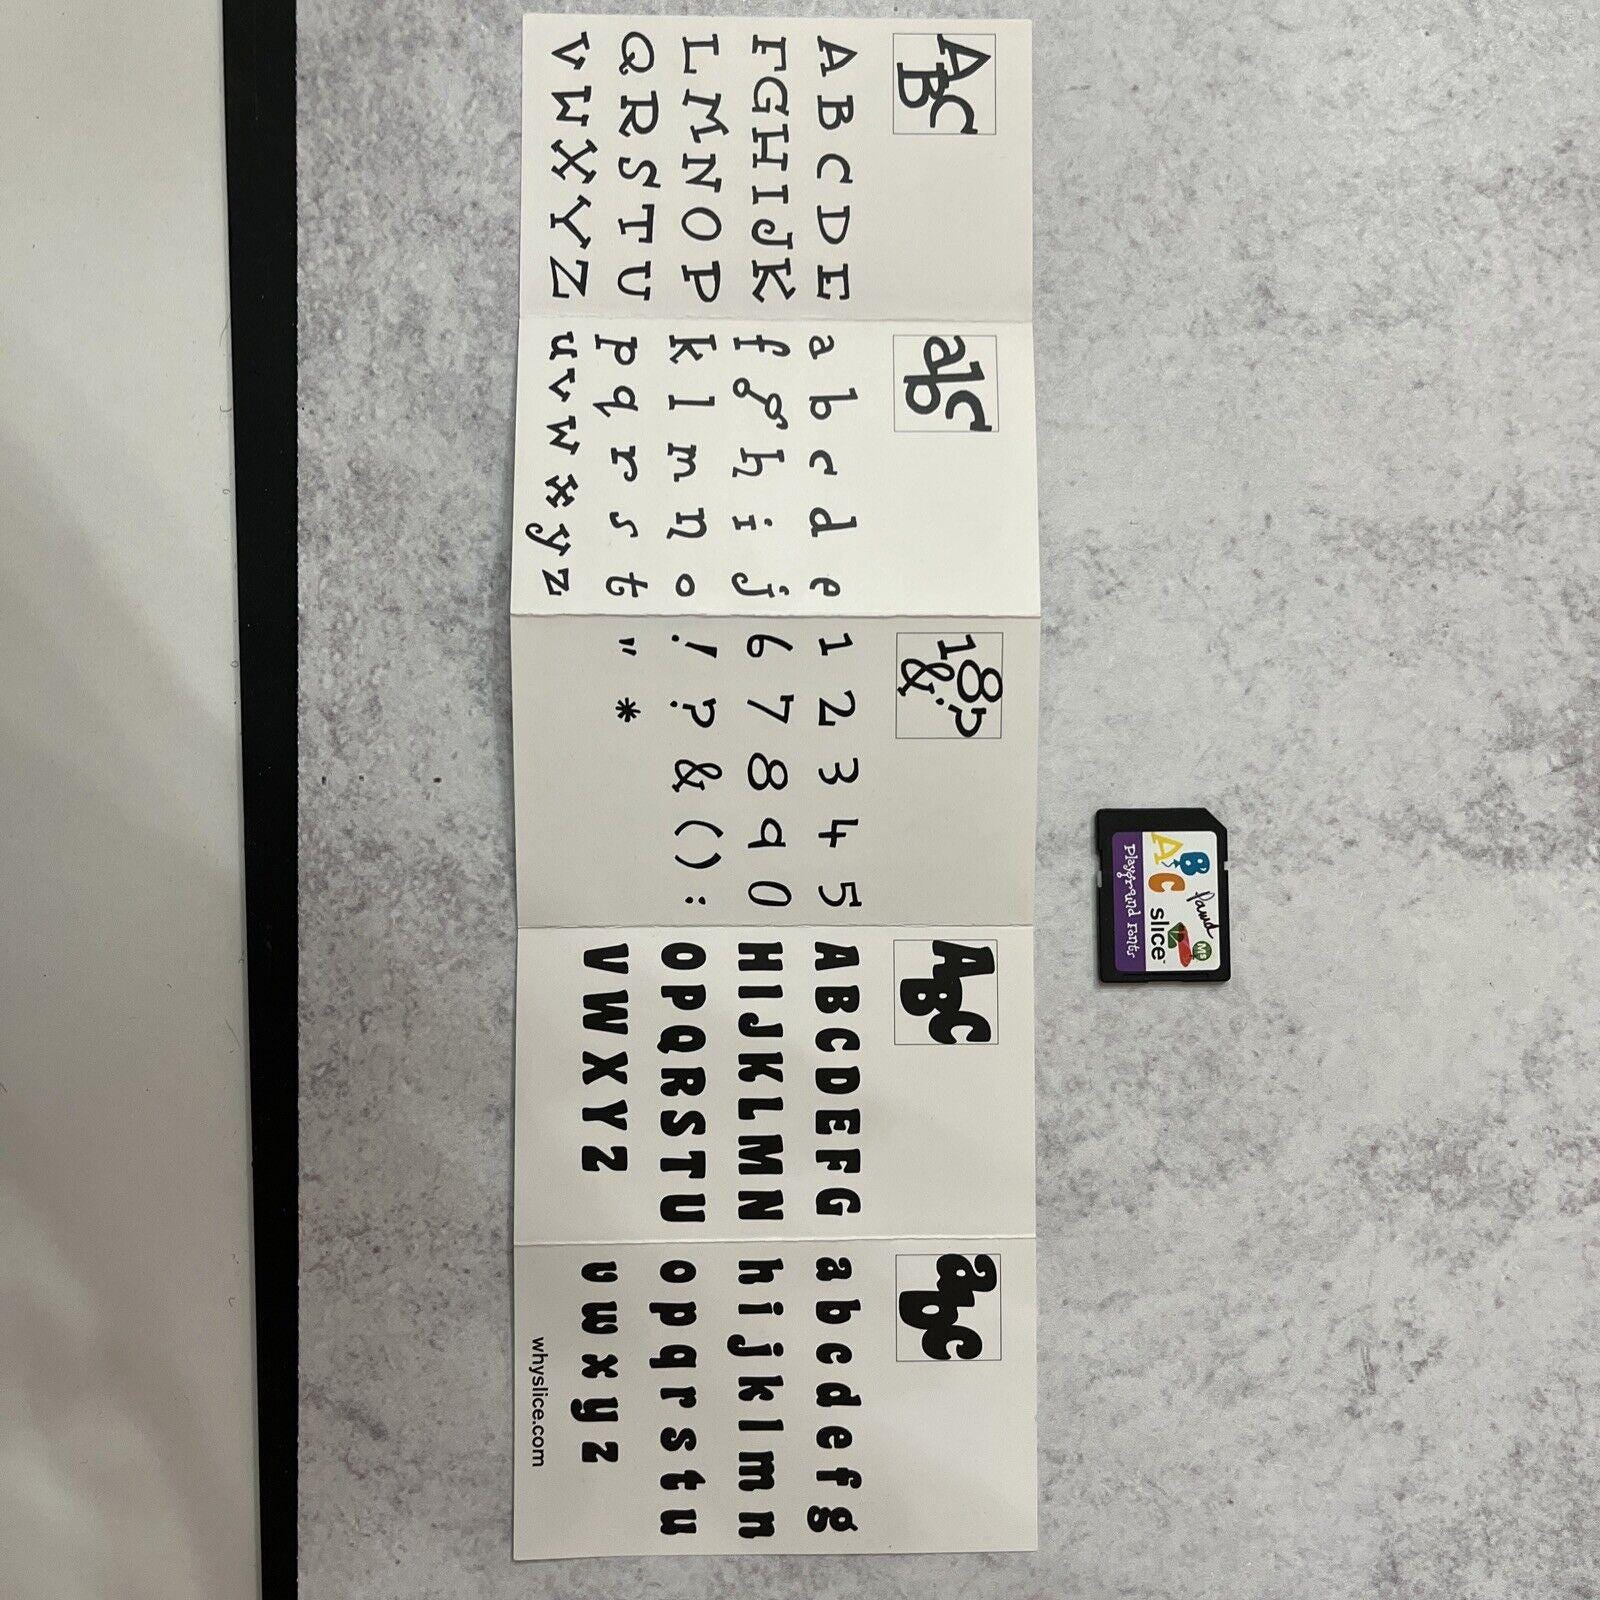 ABC
A B C D E
F G H I J K
L M N O P
Q R S T U
V W X Y Z
abc
a b c d e
f g h i j
k l m n o
p q r s t
u v w x y z
18?
&!
1 2 3 4 5
6 7 8 9 0
! ? & ( ) :
" *
ABC
A B C D E F G
H I J K L M N
O P Q R S T U
V W X Y Z
abc
a b c d e f g
h i j k l m n
o p q r s t u
v w x y z
whyslice.com
MD
ABC slice™
Playground Fonts